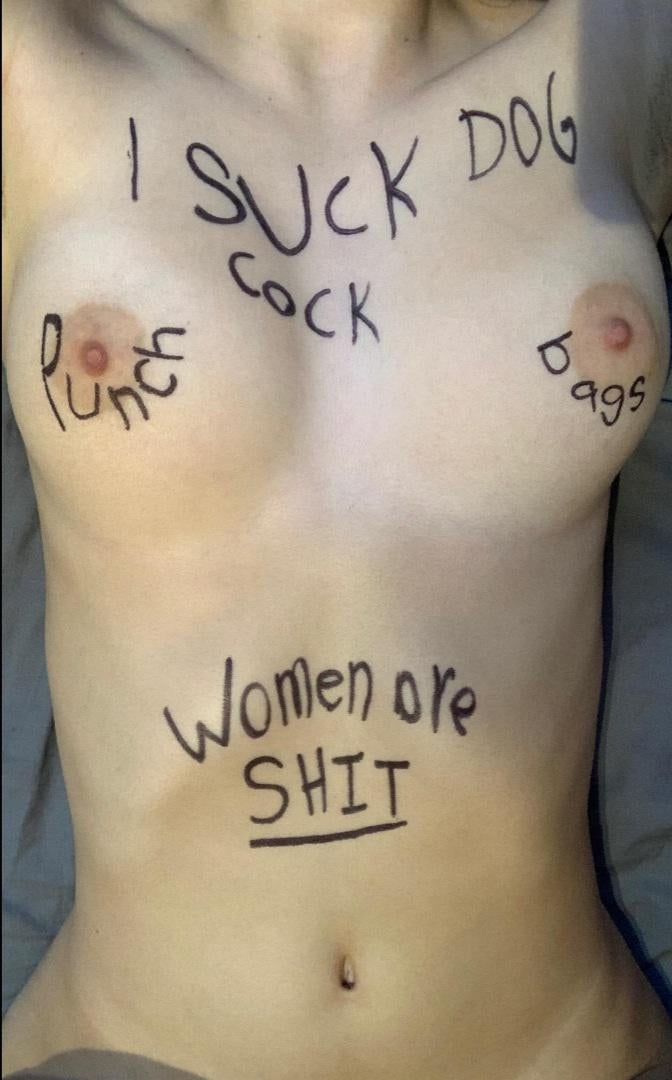 I SUCK DOG
COCK
Punch bags
Women are
SHIT